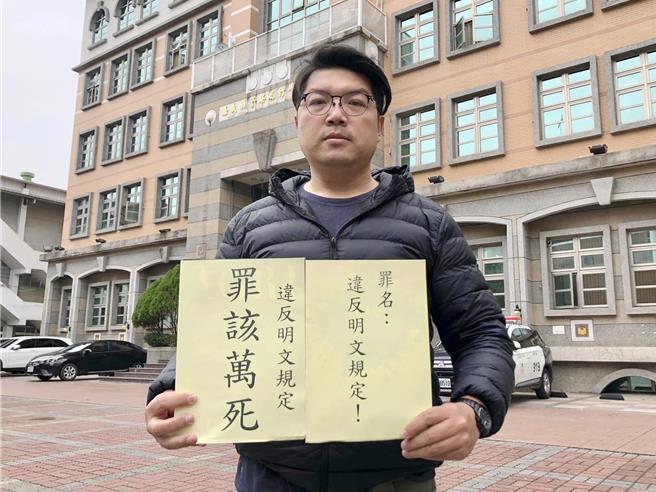 罪名：
違反明文規定！
違反明文規定
罪該萬死